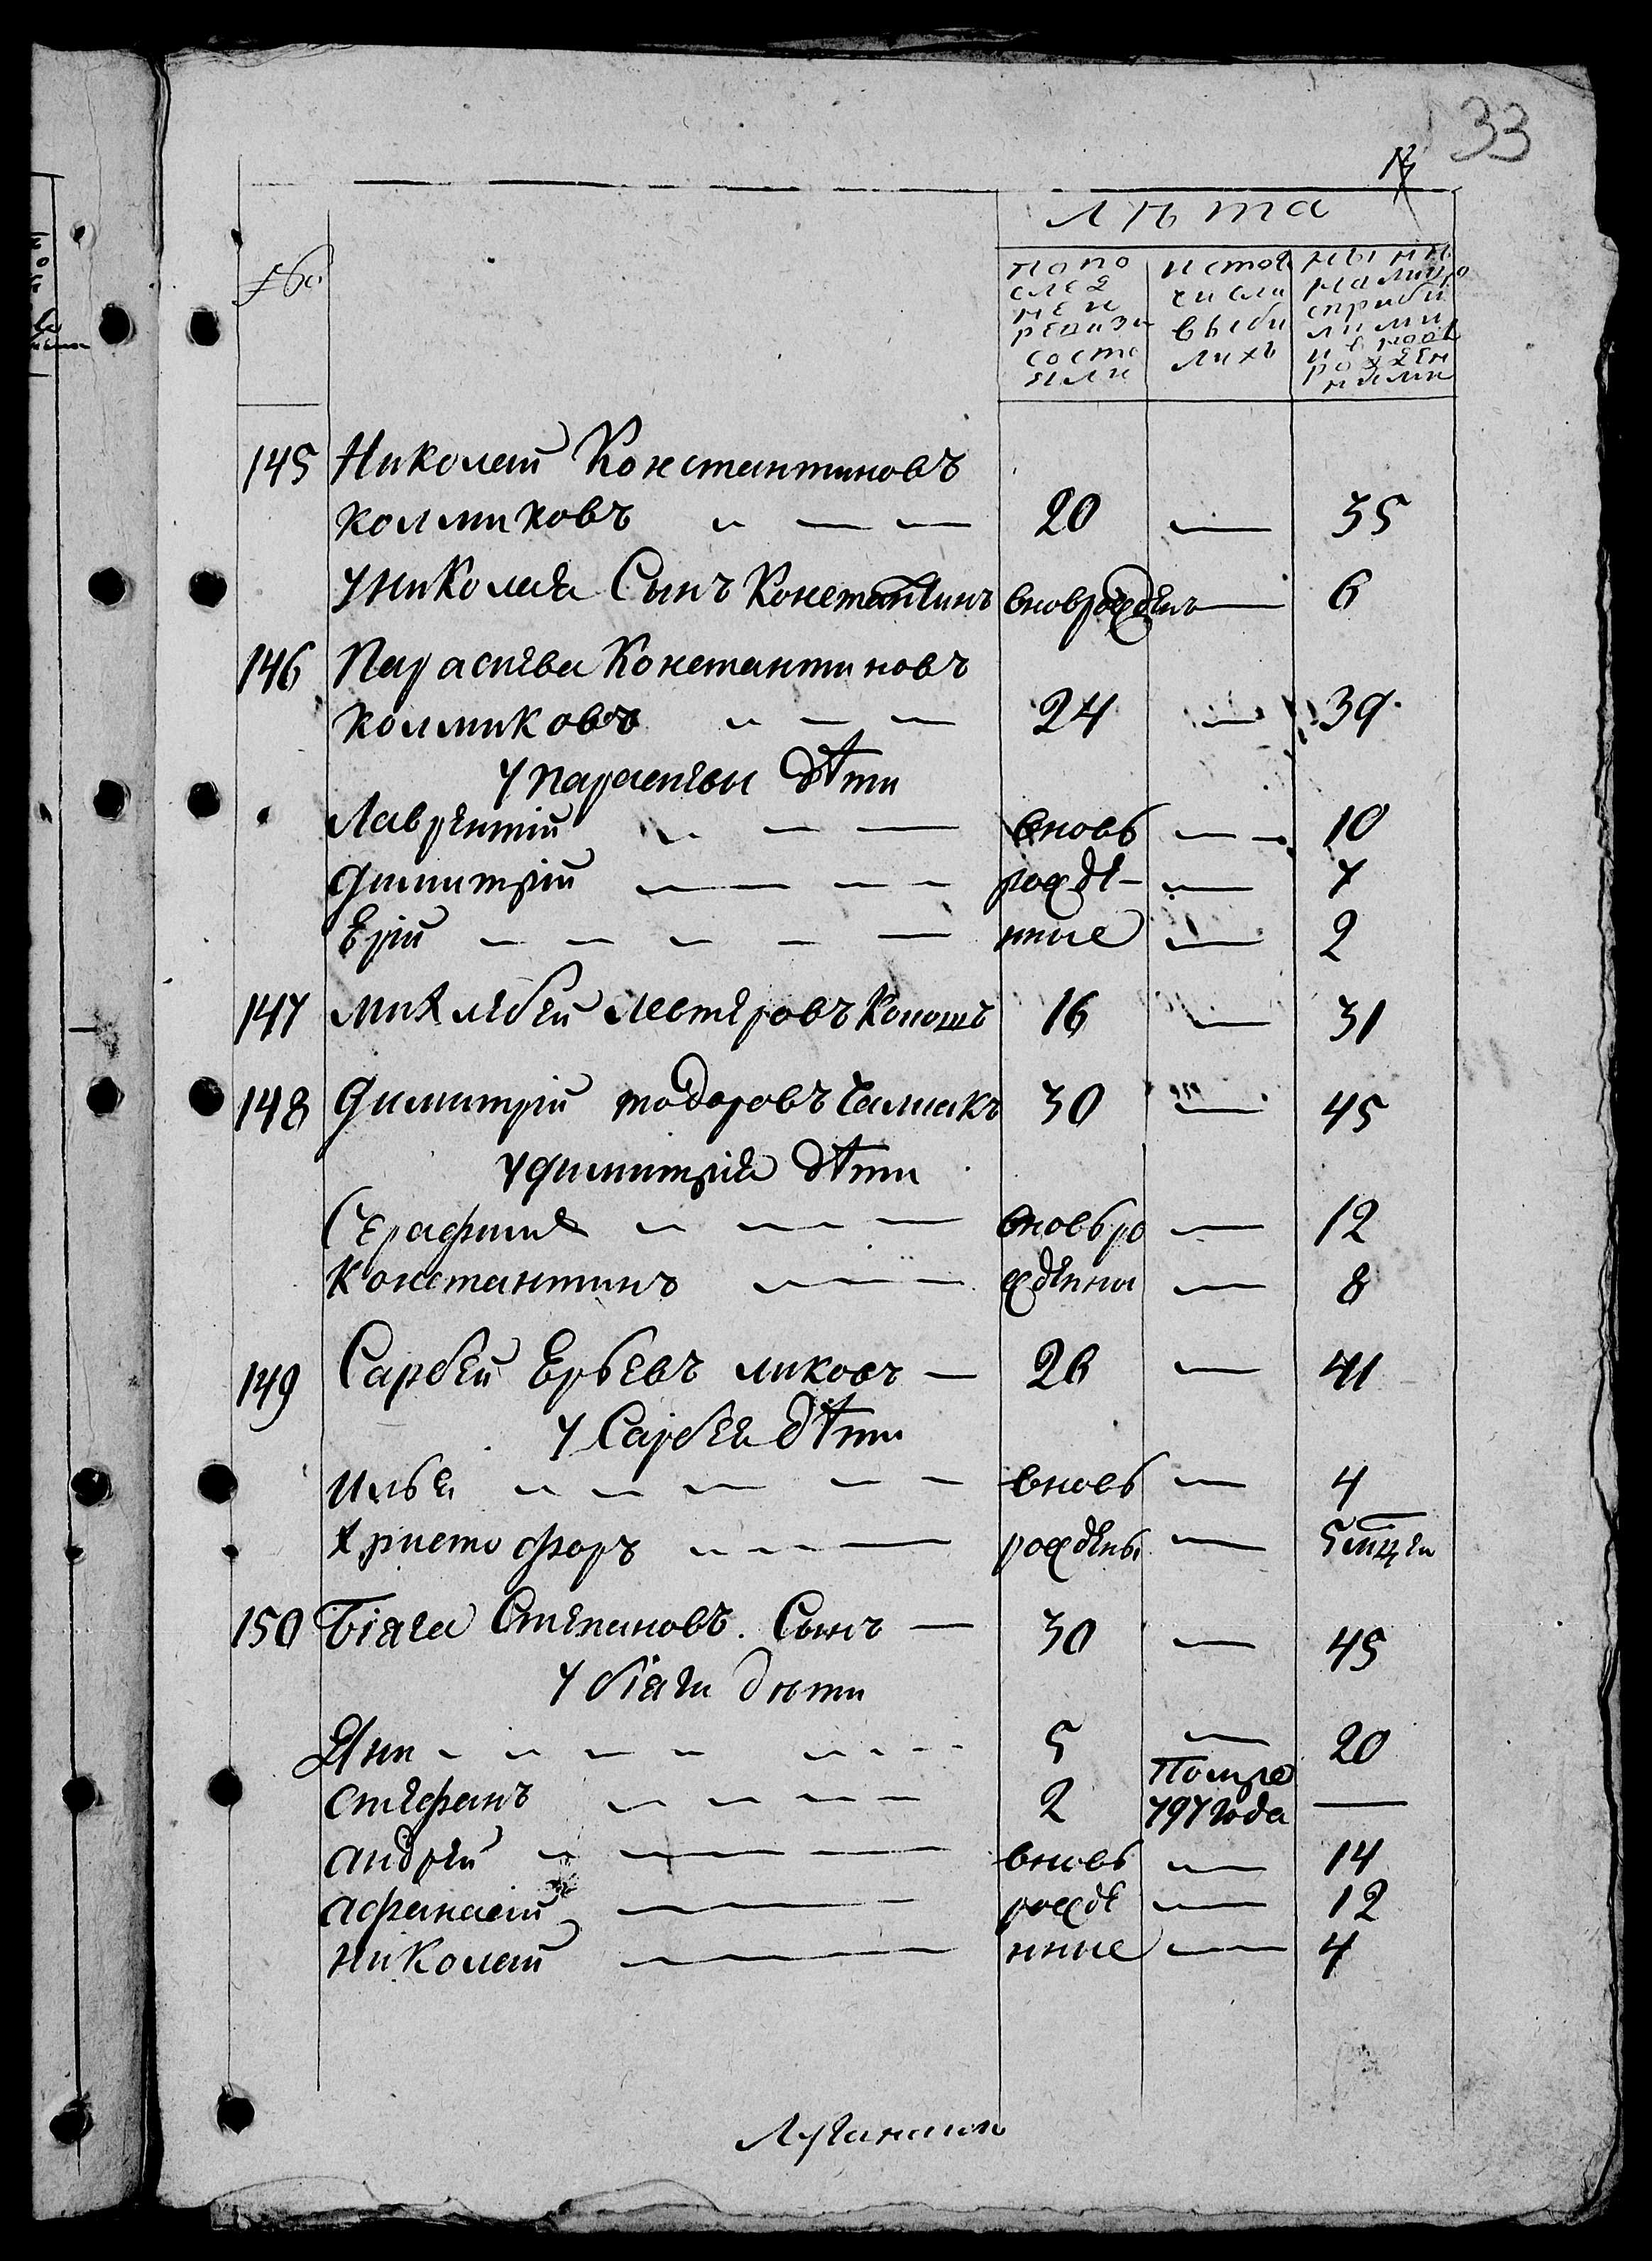 33
№
лѣта
по по
след
ней
ревизи
состо
яли
ис тог
числа
выби
лихъ
нынѣ
на лицо
с приби
лими
и внов
рожден
ними
145 Николай Константиновъ
колмиковъ 20 — 35
У николая Сынъ Константинъ вноврожденъ — 6
146 Параскева Константиновъ
колмиковъ 24 — 39
У параскевы дѣти
Лаврентий вновь — 10
Димитрій рожде- — 7
Ерій нные — 2
147 михлебей лестеровъ Копошъ 16 — 31
148 Димитрій тодоровъ Чалпакъ 30 — 45
У димитрія дѣти
Серафимъ вновь ро — 12
Константинъ жденны — 8
149 Сарбей Ерьевъ ликовъ — 26 — 41
У Сарбея дѣти
Илья вновь — 4
Христофоръ рождены — 5 мцей
150 Біяга Степановъ Сынъ — 30 — 45
У біяги дѣти
Яни 5 — 20
стефанъ 2 Помре 797 года —
андрей вновь — 14
афанасій рожде — 12
николай нные — 4